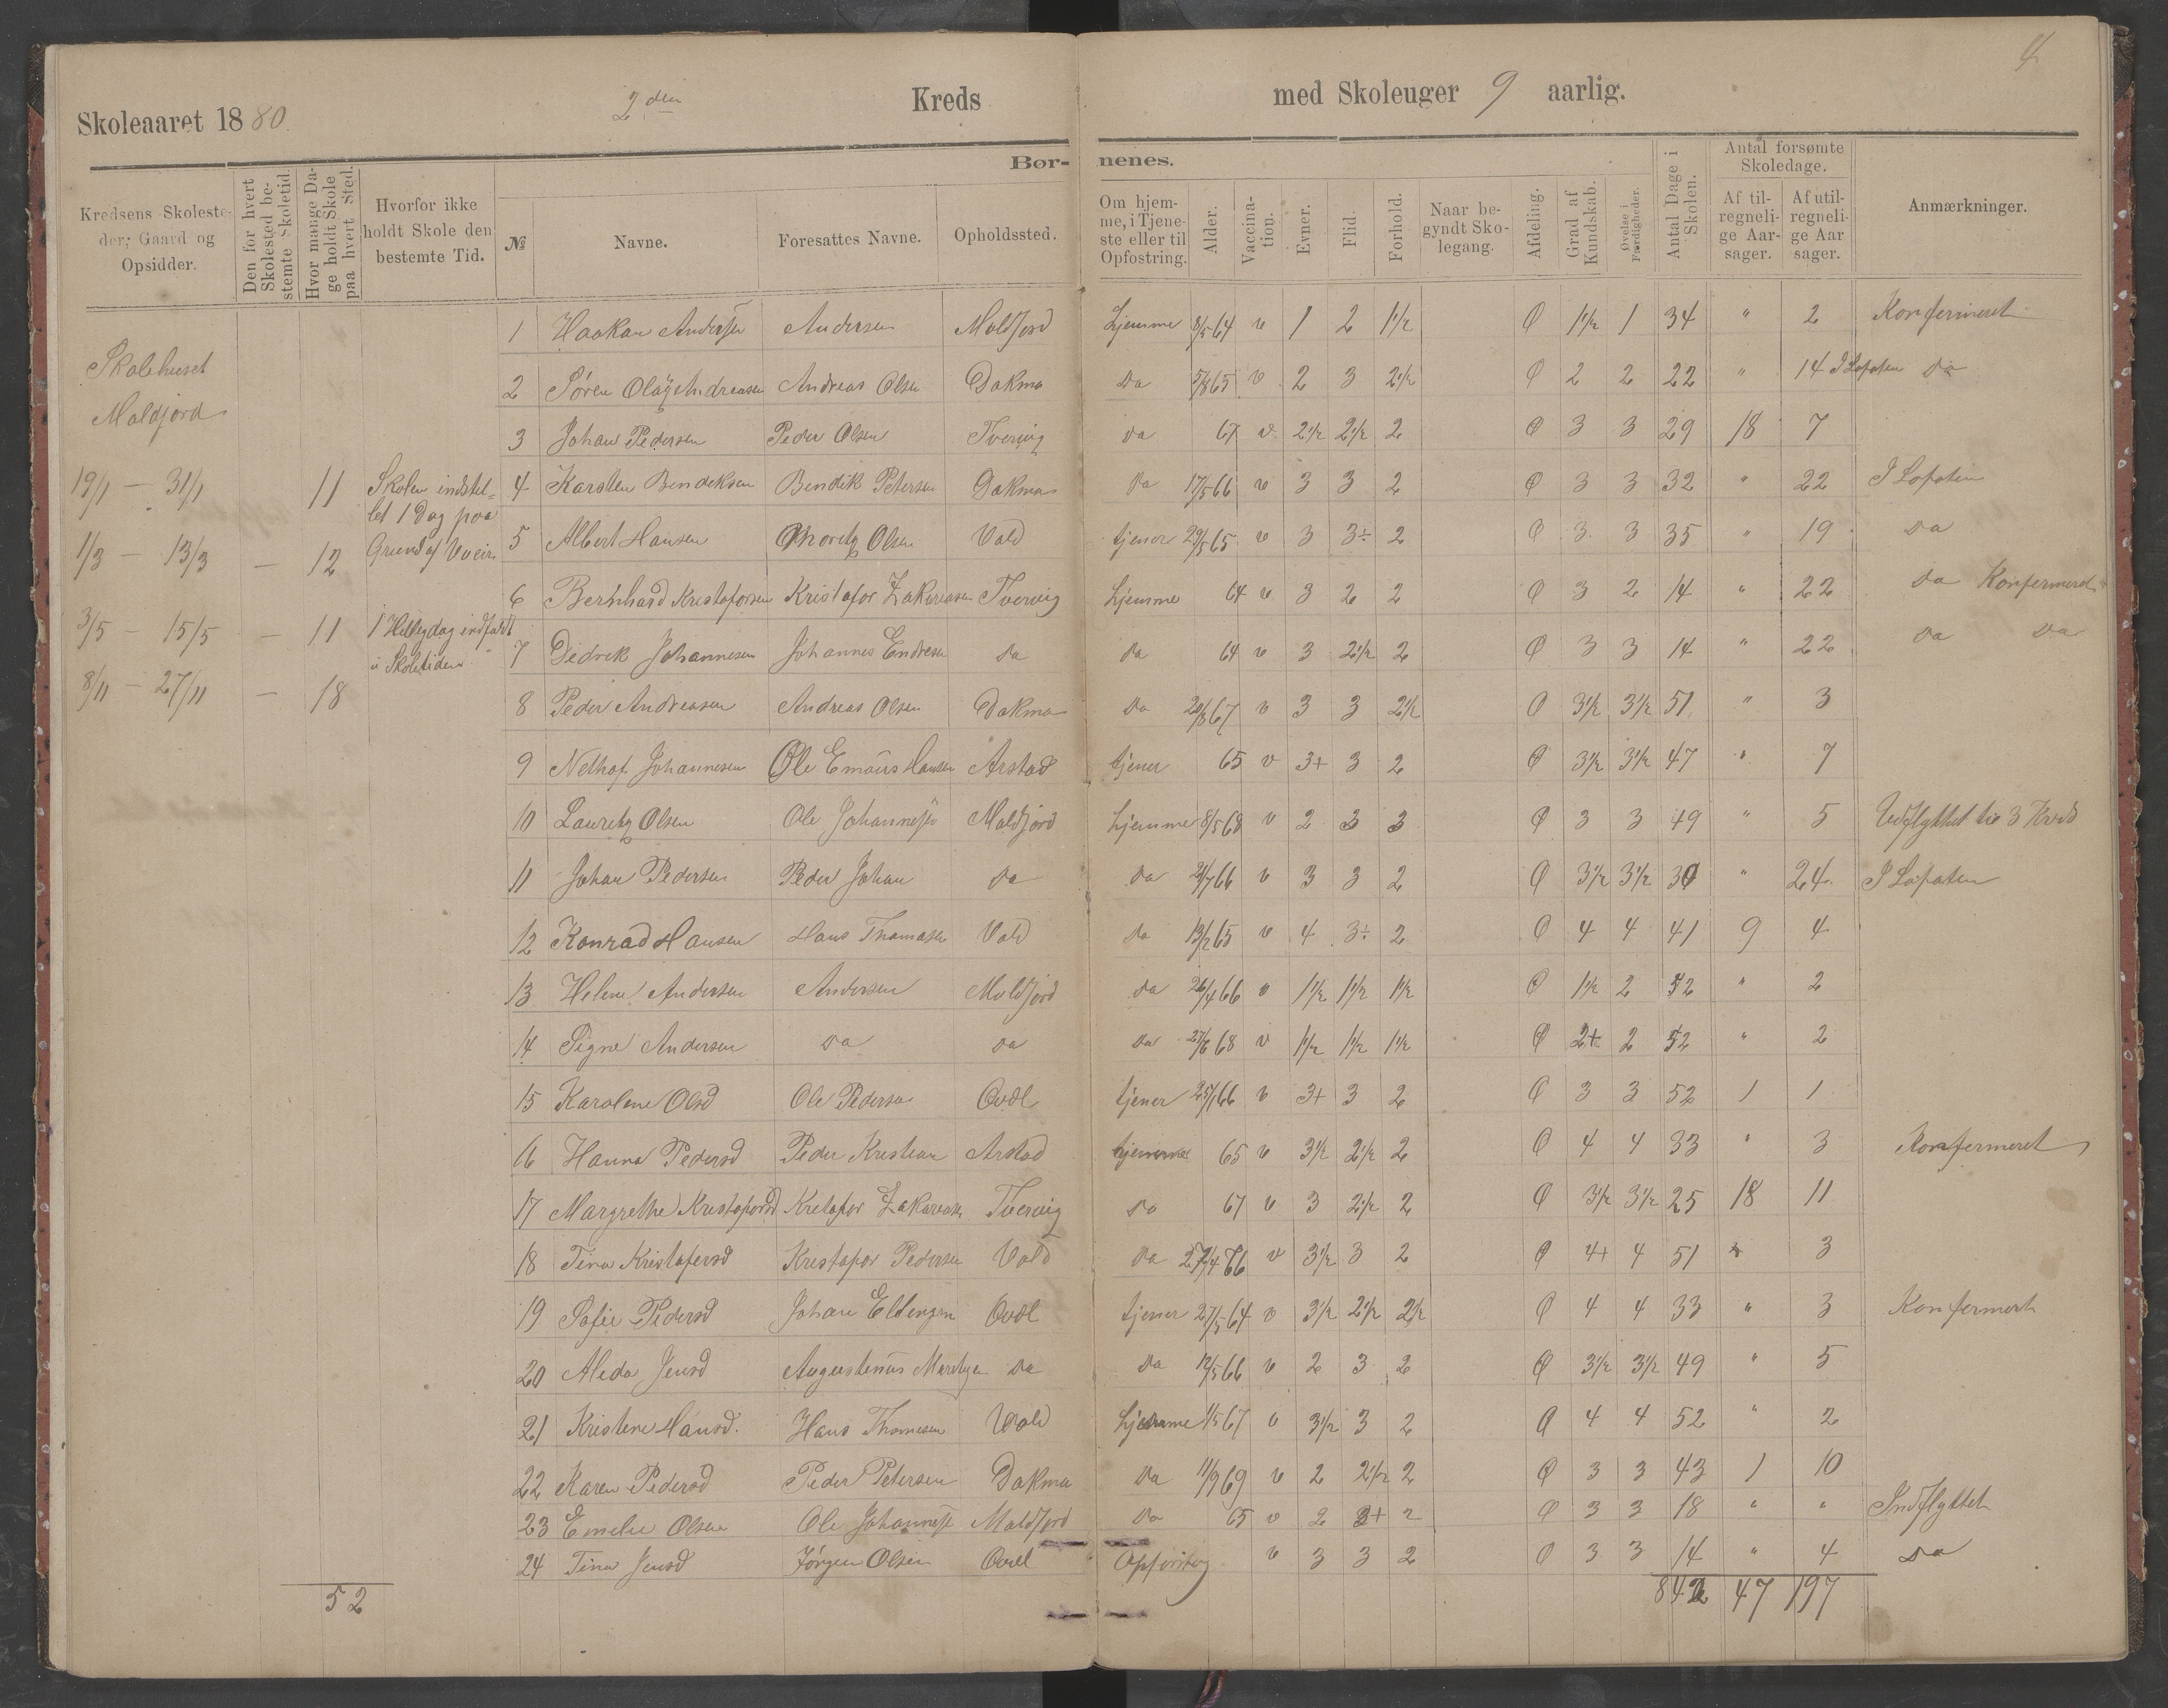 4
Skoleaaret 1880. 2den Kreds med Skoleuger 9 aarlig.
Bør- nenes.
Kredsens Skoleste-
der; Gaard og
Opsidder.
Den for hvert
Skolested be-
stemte Skoletid.
Hvor mange Da-
ge holdt Skole
paa hvert Sted.
Hvorfor ikke
holdt Skole den
bestemte Tid.
№
Navne.
Foresattes Navne.
Opholdssted.
Om hjem-
me, i Tjene-
ste eller til
Opfostring.
Alder.
Vaccina-
tion.
Evner.
Flid.
Forhold.
Naar be-
gyndt Sko-
legang.
Afdeling.
Grad af
Kundskab.
Øvelse i
Færdigheder.
Antal Dage i
Skolen.
Antal forsømte
Skoledage.
Af til-
regneli-
ge Aar-
sager.
Af util-
regneli-
ge Aar
sager.
Anmærkninger.
Skolehuset
Moldjord
19/1 — 31/1 11 Skolen indstil-
let 1 Dag paa
Grund af Uveir
1/3 — 13/3 — 12
3/5 — 15/5 — 11 1 Helligdag indfaldt
i Skoletiden
8/11 — 27/11 — 18
52
1 Haakan Andersen Andersen Moldjord hjemme 8/5 64 v 1 2 1½ Ø 1½ 1 34 " 2 Konfirmeret
2 Søren Olaf Andreasen Andreas Olsen Dokmo da 65 v 2 3 2½ Ø 2 2 22 " 14 I Lofoten da
3 Johan Pedersen Peder Olsen Tvervig da 67 v 2½ 2½ 2 Ø 3 3 29 18 7
4 Karsten Bendeksen Bendik Petersen Dokmo da 17/5 66 v 3 3 2 Ø 3 3 32 " 22 I Lofoten
5 Albert Hansen Olsen Vold tjener 29/5 65 v 3 3÷ 2 Ø 3 3 35 " 19 da
6 Bernhard Kristofersen Kristofor Zakariasen Tvervig hjemme 64 v 3 2 2 Ø 3 2 14 " 22 da Konfermeret
7 Dedrek Johannesen Johannes Endresen da da 64 v 3 2½ 2 Ø 3 3 14 " 22 da da
8 Peder Andreasen Andreas Olsen Dokmo da 67 v 3 3 2½ Ø 3½ 3½ 51 " 3
9 Nethof Johannesen Ole Emaus Hansen Arstad tjener 65 v 3+ 3 2 Ø 3½ 3½ 47 " 7
10 Lauretz Olsen Ole Johannesen Moldjord hjemme 8/5 68 v 2 3 3 Ø 3 3 49 " 5 Udflyttet til 3 Kreds
11 Johan Pedersen Peder Johan da da 21/7 66 v 3 3 2 Ø 3½ 3½ 30 " 24 I Lofoten
12 Konrad Hansen Hans Thomasen Vold da 13/2 65 v 4 3÷ 2 Ø 4 4 41 9 4
13 Helene Andersen Andersen Moldjord da 26/4 66 v 1½ 1½ 1½ Ø 1½ 2 52 " 2
14 Signe Andersen da da da 27/6 68 v 1½ 1½ 1½ Ø 2+ 2 52 " 2
15 Karolene Olsd Ole Pedersen Ovdl tjener 25/1 66 v 3+ 3 2 Ø 3 3 52 1 1
16 Hanna Pedersd Peder Krestian Arstad hjemme 65 v 3½ 2½ 2 Ø 4 4 33 " 3 Konfermeret
17 Margrethe Kristofersd Kristofor Zakariasen Tvervig da 67 v 3 2½ 2 Ø 3½ 3½ 25 18 11
18 Tina Kristofersd Krestofor Pedersen Vold da 27/4 66 v 3½ 3 2 Ø 4+ 4 51 " 3
19 Sofie Pedersd Johan Ellingsen Ovdl tjener 64 v 3½ 2½ 2½ Ø 4 4 33 " 3 Konfermert
20 Aleda Jensd Augustenus da da 12/5 66 v 2 3 2 Ø 3½ 3½ 49 " 5
21 Kristene Hansd. Hans Thomesen Vold hjemme 1/5 67 v 3½ 3 2 Ø 4 4 52 " 2
22 Karen Pedersd Peder Petersen Dokmo da 11/9 69 v 2 2½ 2 Ø 3 3 43 1 10
23 Emelie Olsen Ole Johannesen Moldjord da 65 v 2 3+ 2 Ø 3 3 18 " " Indflyttet
24 Tina Jensd Jørgen Olsen Ovdl Opfostring v 3 3 2 Ø 3 3 14 " 4 da
842 47 197